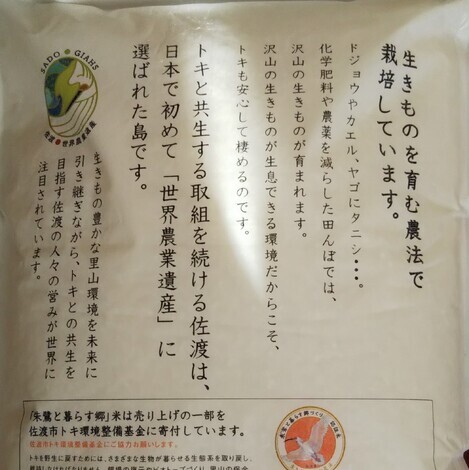 生きものを育む農法で
栽培しています。
ドジョウやカエル、ヤゴにタニシ・・・・。
化学肥料や農薬を減らした田んぼでは、
沢山の生きものが育まれます。
沢山の生きものが生息できる環境だからこそ、
トキも安心して棲めるのです。
トキと共生する取組を続ける佐渡は、
日本で初めて「世界農業遺産」に
選ばれた島です。
生きもの豊かな里山環境を未来に
引き継ぎながら、トキとの共生を
目指す佐渡の人々の営みが世界に
注目されています。
SADO GIAHS
佐渡 世界農業遺産
「朱鷺と暮らす郷」米は売り上げの一部を
佐渡市トキ環境整備基金に寄付しています。
佐渡市トキ環境整備基金にご協力お願いします。
トキを野生に戻すためには、さまざまな生物が暮らせる生態系を取り戻し、